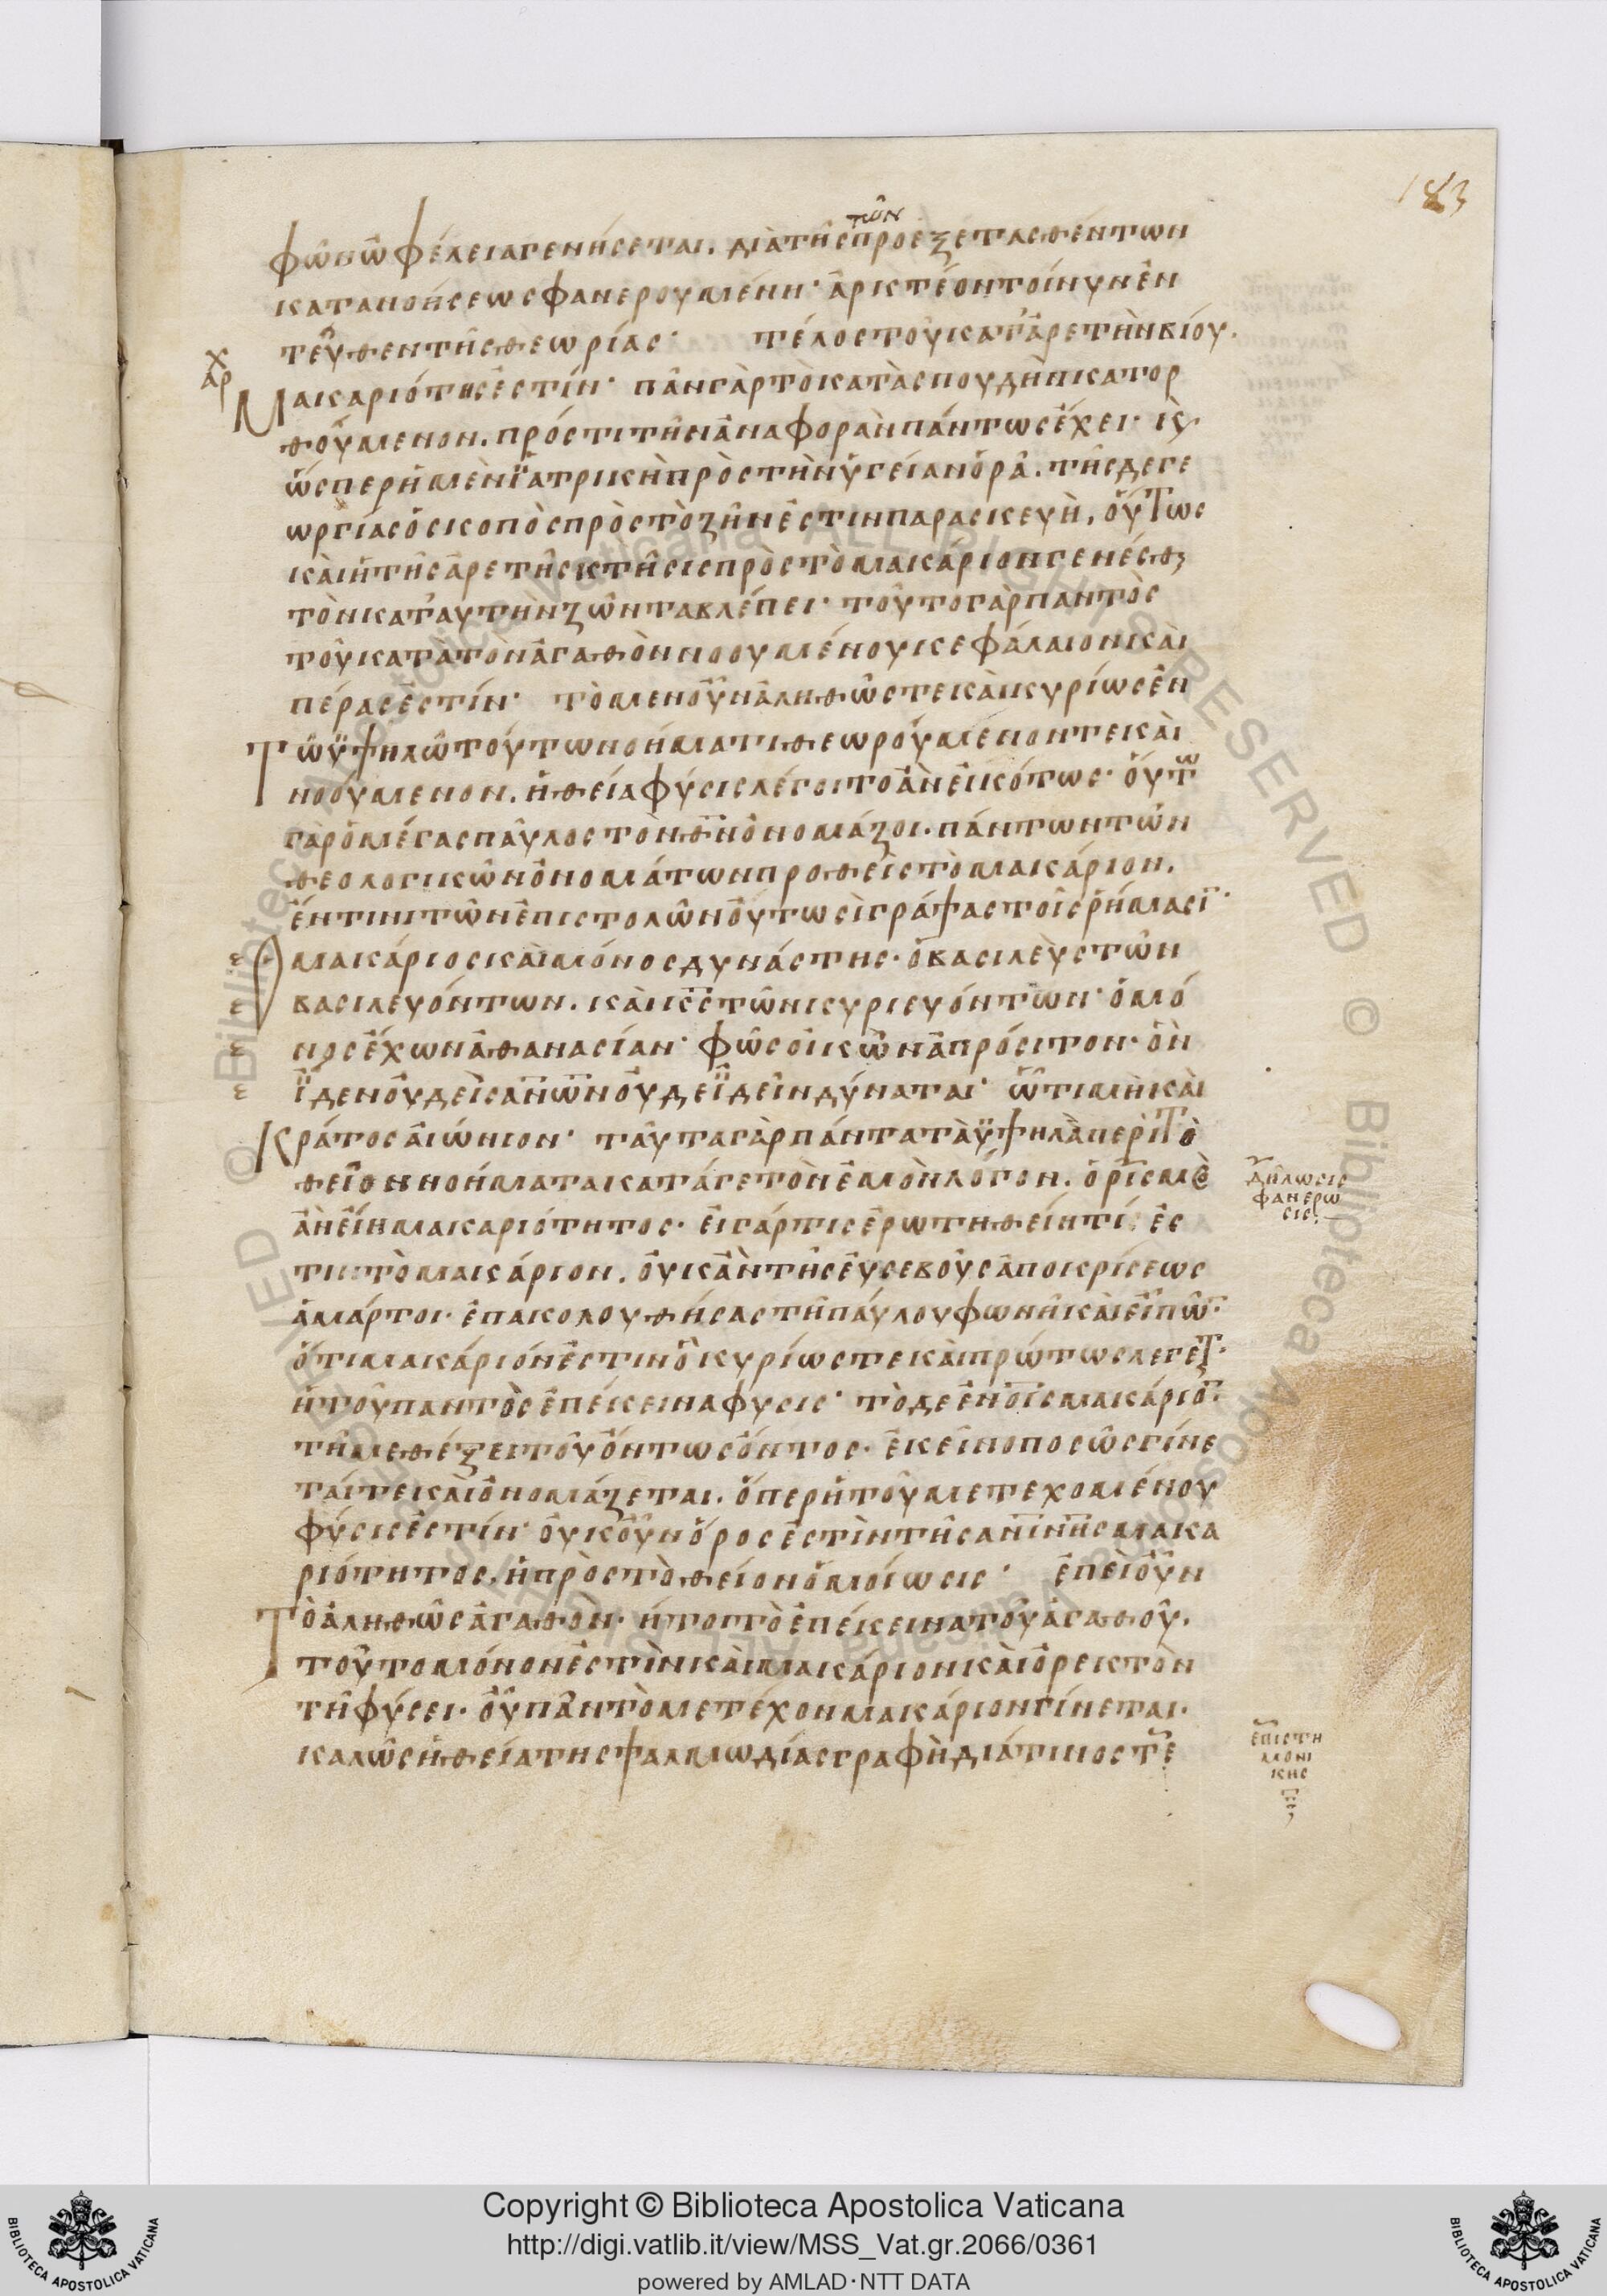 183
φῶν ὠφέλεια γενήσεται. διὰ τῆς τῶν προεξετασθέντων
κατανοήσεως φανερουμένη· ἀρκτέον τοίνυν ἐν
τεῦθεν τῆς θεωρίας· τέλος τοῦ κατ' ἀρετὴν βίου.
χ
αρ
Μακαριότης ἐστίν· πᾶν γὰρ τὸ κατὰ σπουδὴν κατορ
θούμενον. πρός τι τὴν ἀναφορὰν πάντως ἔχει· κϛ
ὥσπερ ἡ μὲν ἰατρικὴ πρὸς τὴν ὑγείαν ὁρᾷ. τῆς δε γε
ωργίας ὁ σκοπὸς πρὸς τὸ ζῆν ἐστιν παρασκευὴ, οὕτως
καὶ ἡ τῆς ἀρετῆς κτῆσις πρὸς τὸ μακάριον γενέσθ
τὸν κατ' αυτὴν ζῶντα βλέπει· τοῦτο γὰρ παντὸς
τοῦ κατὰ τὸν ἀγαθὸν νοουμένου κεφάλαιον καὶ
πέρας ἐστίν· τὸ μεν οὖν ἀληθῶς τε καὶ κυρίως ἐν
Τῶ ὑψηλῶ τούτω νοήματι θεωρούμενόν τε καὶ
νοούμενον. ἡ θεία φύσις λέγοιτο ἂν εἰκότως· οὕτω
γὰρ ὁ μέγας παῦλος τὸν θν ὀνομάζοι. πάντων τῶν
θεολογικῶν ὀνομάτων προθεὶς τὸ μακάριον.
ἔν τινι τῶν ἐπιστολῶν οὕτωσὶ γράψας τοῖς ρήμασι·
Ὁ μακάριος καὶ μόνος δυνάστης· ὁ βασιλεὺς τῶν
βασιλευόντων. καὶ κς τῶν κυριευόντων· ὁ μό
νος ἔχων ἀθανασίαν· φῶς οἰκῶν ἀπρόσιτον· ὃν
ἴδεν οὐδεὶς ανων οὐδε ἰδεῖν δύναται· ὧ τιμὴ καὶ
Κράτος αἰώνιον· ταῦτα γὰρ πάντα τὰ ὑψηλὰ περὶ τὸ
θεῖον νοήματα κατά γε τὸν ἐμὸν λόγον. ὁρισμὸς
ἂν εἴη μακαριότητος· εἰ γάρ τις ἐρωτηθείη τί ἐς
τιν τὸ μακάριον. οὐκ ἂν τῆς εὐσεβοῦς ἀποκρίσεως
ἁμάρτοι· ἐπακολουθήσας τῆ παύλου φωνῆ καὶ εἰπὼν·
ὅτι μακάριόν ἐστιν ὃ κυρίως τε καὶ πρώτως λεγετ·
ἡ τοῦ παντὸς ἐπέκεινα φυσις· τὸ δε ἐν οἷς μακάριον·
τῆ μεθέξει τοῦ ὄντως ὄντος· ἐκεῖνο ποσῶς γίνε
ταί τε καὶ ὀνομάζεται. ὅπερ ἡ τοῦ μετεχομένου
φύσις ἐστίν· οὐκοῦν ὅρος ἐστὶν τῆς ανινης μακα
ριότητος, ἡ πρὸς τὸ θεῖον ὁμοίωσις· ἐπεὶ οὖν
Τὸ ἀληθῶς ἀγαθὸν· ἤτοι τὸ ἐπέκεινα τοῦ ἀγαθοῦ.
τοῦτο μόνον ἐστὶν καὶ μακάριον καὶ ὀρεκτὸν
τῆ φύσει· οὗ πᾶν τὸ μετέχον μακάριον γίνεται.
καλῶς ἡ θεία τῆς ψαλμωδίας γραφὴ διά τινος τε
δήλωσις
φανερω
σις
ἐπιστη
μονι
κης
Copyright © Biblioteca Apostolica Vaticana
http://digi.vatlib.it/view/MSS_Vat.gr.2066/0361
powered by AMLAD·NTT DATA